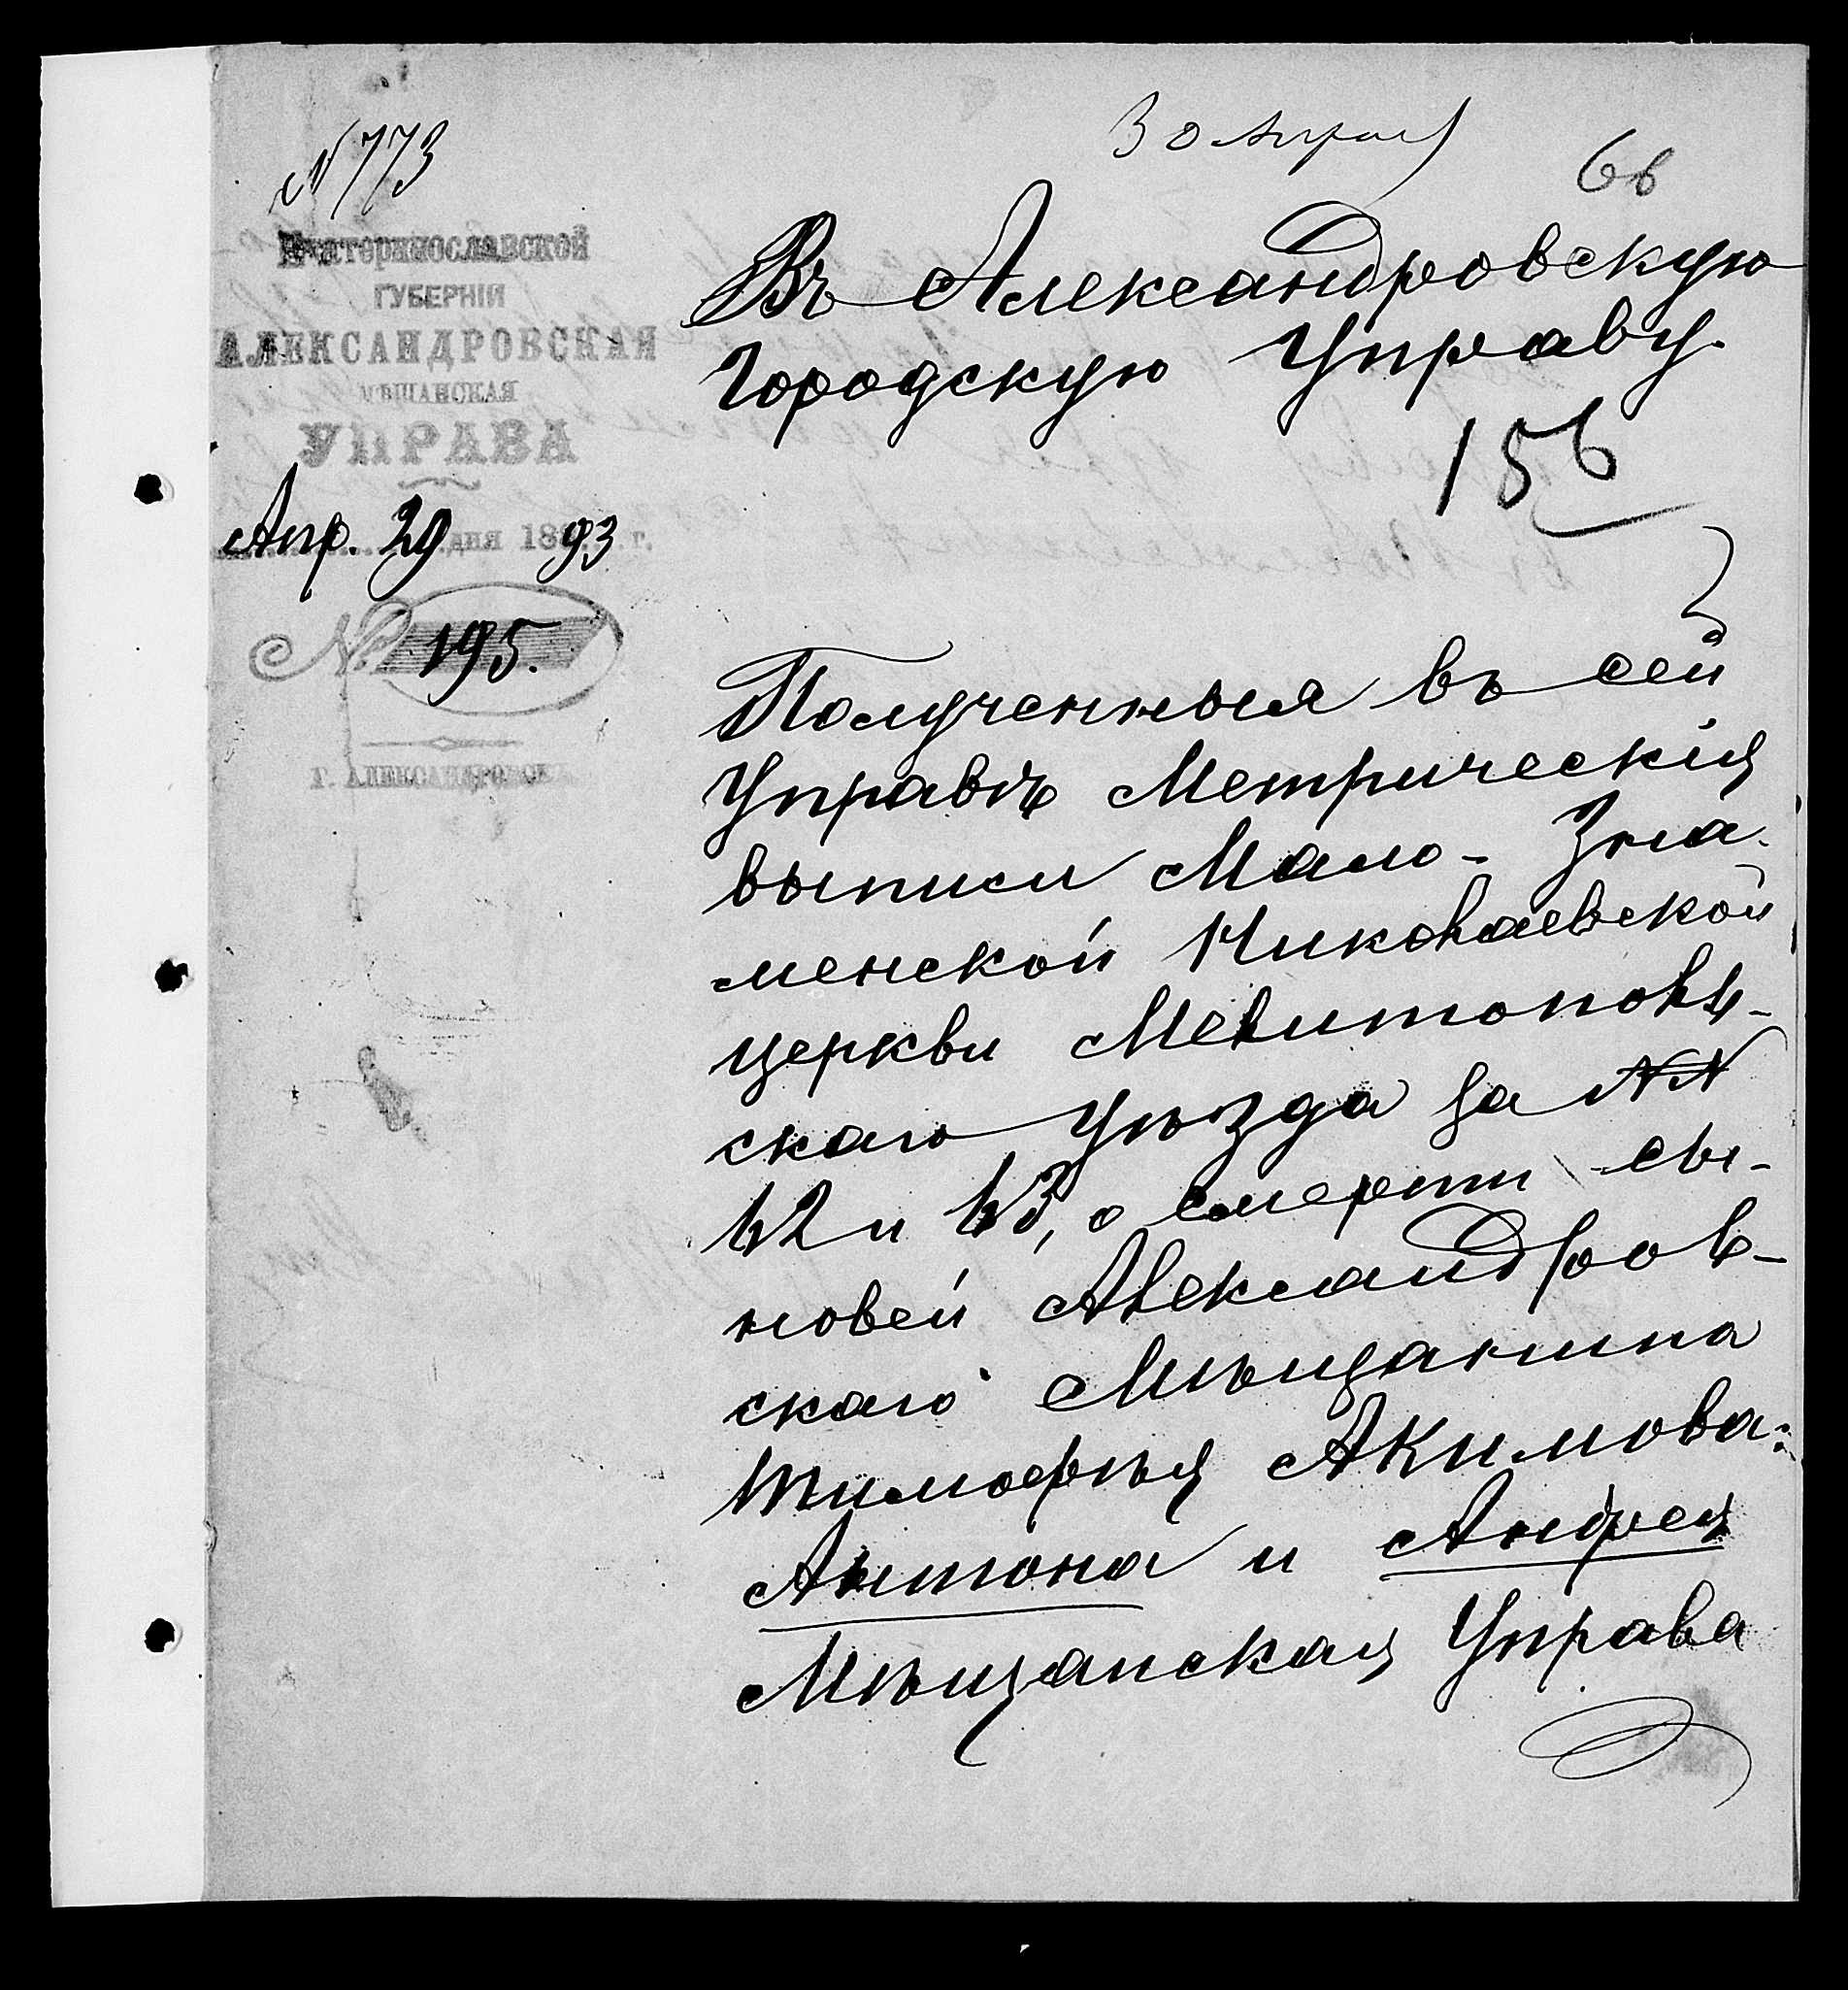 № 773
30 Апрѣля
66
Екатеринославской
ГУБЕРНІИ
АЛЕКСАНДРОВСКАЯ
МѢЩАНСКАЯ
УПРАВА
Апр. 29 дня 1893 г.
№ 195.
г. АЛЕКСАНДРОВСКЪ
Въ Александровскую
Городскую Управу.
156
Полученныя въ сей
Управѣ Метрическія
выписи Мало-Зна-
менской Николаевской
церкви Мелитополь-
скаго Уѣзда за №№
62 и 63, о смерти сы-
новей Александров-
скаго Мѣщанина
Тимофѣя Акимова:
Антона и Андрея
Мѣщанская Управа